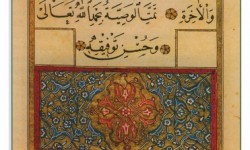 والآخرة تمت الوصية بحمد الله تعالى
وحسن توفيقه